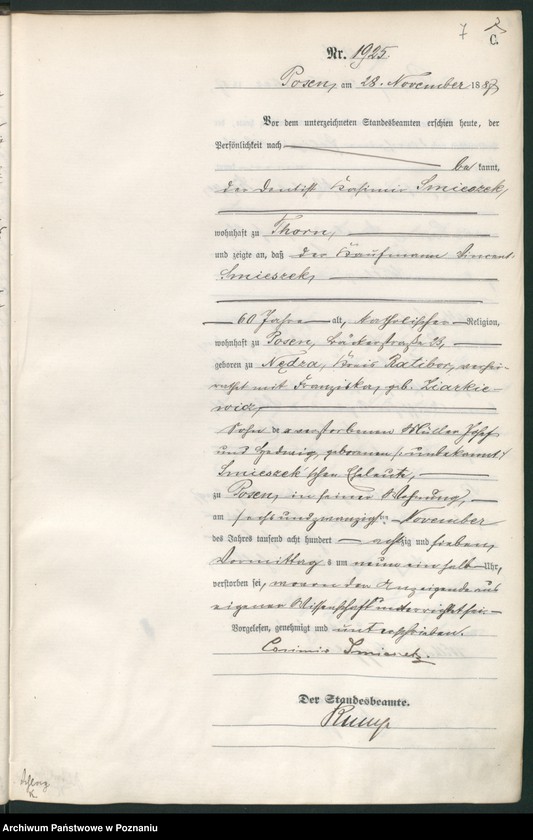 7
C.
Nr. 1925.
Posen, am 28. November 1887
Vor dem unterzeichneten Standesbeamten erschien heute, der
Persönlichkeit nach
be kannt,
der Dentist Casimir Smieszek,
wohnhaft zu Thorn,
und zeigte an, daß der Kaufmann Vincent
Smieszek,
60 Jahre alt, katholischer Religion,
wohnhaft zu Posen, Bäckerstraße 23,
geboren zu Nędza, Kreis Ratibor, verhei-
rathet mit Franziska, geb. Ziarkie-
wicz,
Sohn der verstorbenen Müller Josef
und Hedwig, geborenen (:unbekannt:)
Smieszek'schen Eheleute,
zu Posen, in seiner Wohnung,
am sechsundzwanzigsten November
des Jahres tausend acht hundert achtzig und sieben,
Vormittags um neun ein halb Uhr,
verstorben sei, wovon der Anzeigende aus
eigener Wissenschaft unterrichtet sei
Vorgelesen, genehmigt und unterschrieben.
Casimir Smieszek.
Der Standesbeamte.
Archiwum Państwowe w Poznaniu